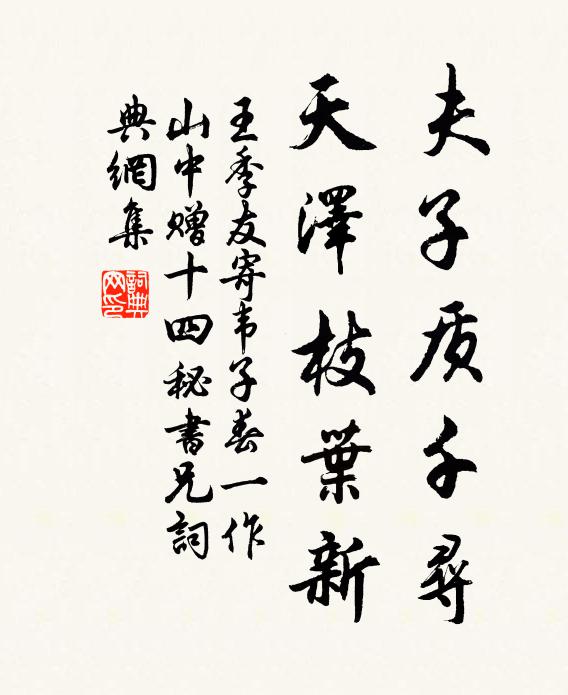 夫子质千尋
天澤枝葉新
王季友寄韦子春一作
山中赠十四秘書兄詞
典網集
詞典网印